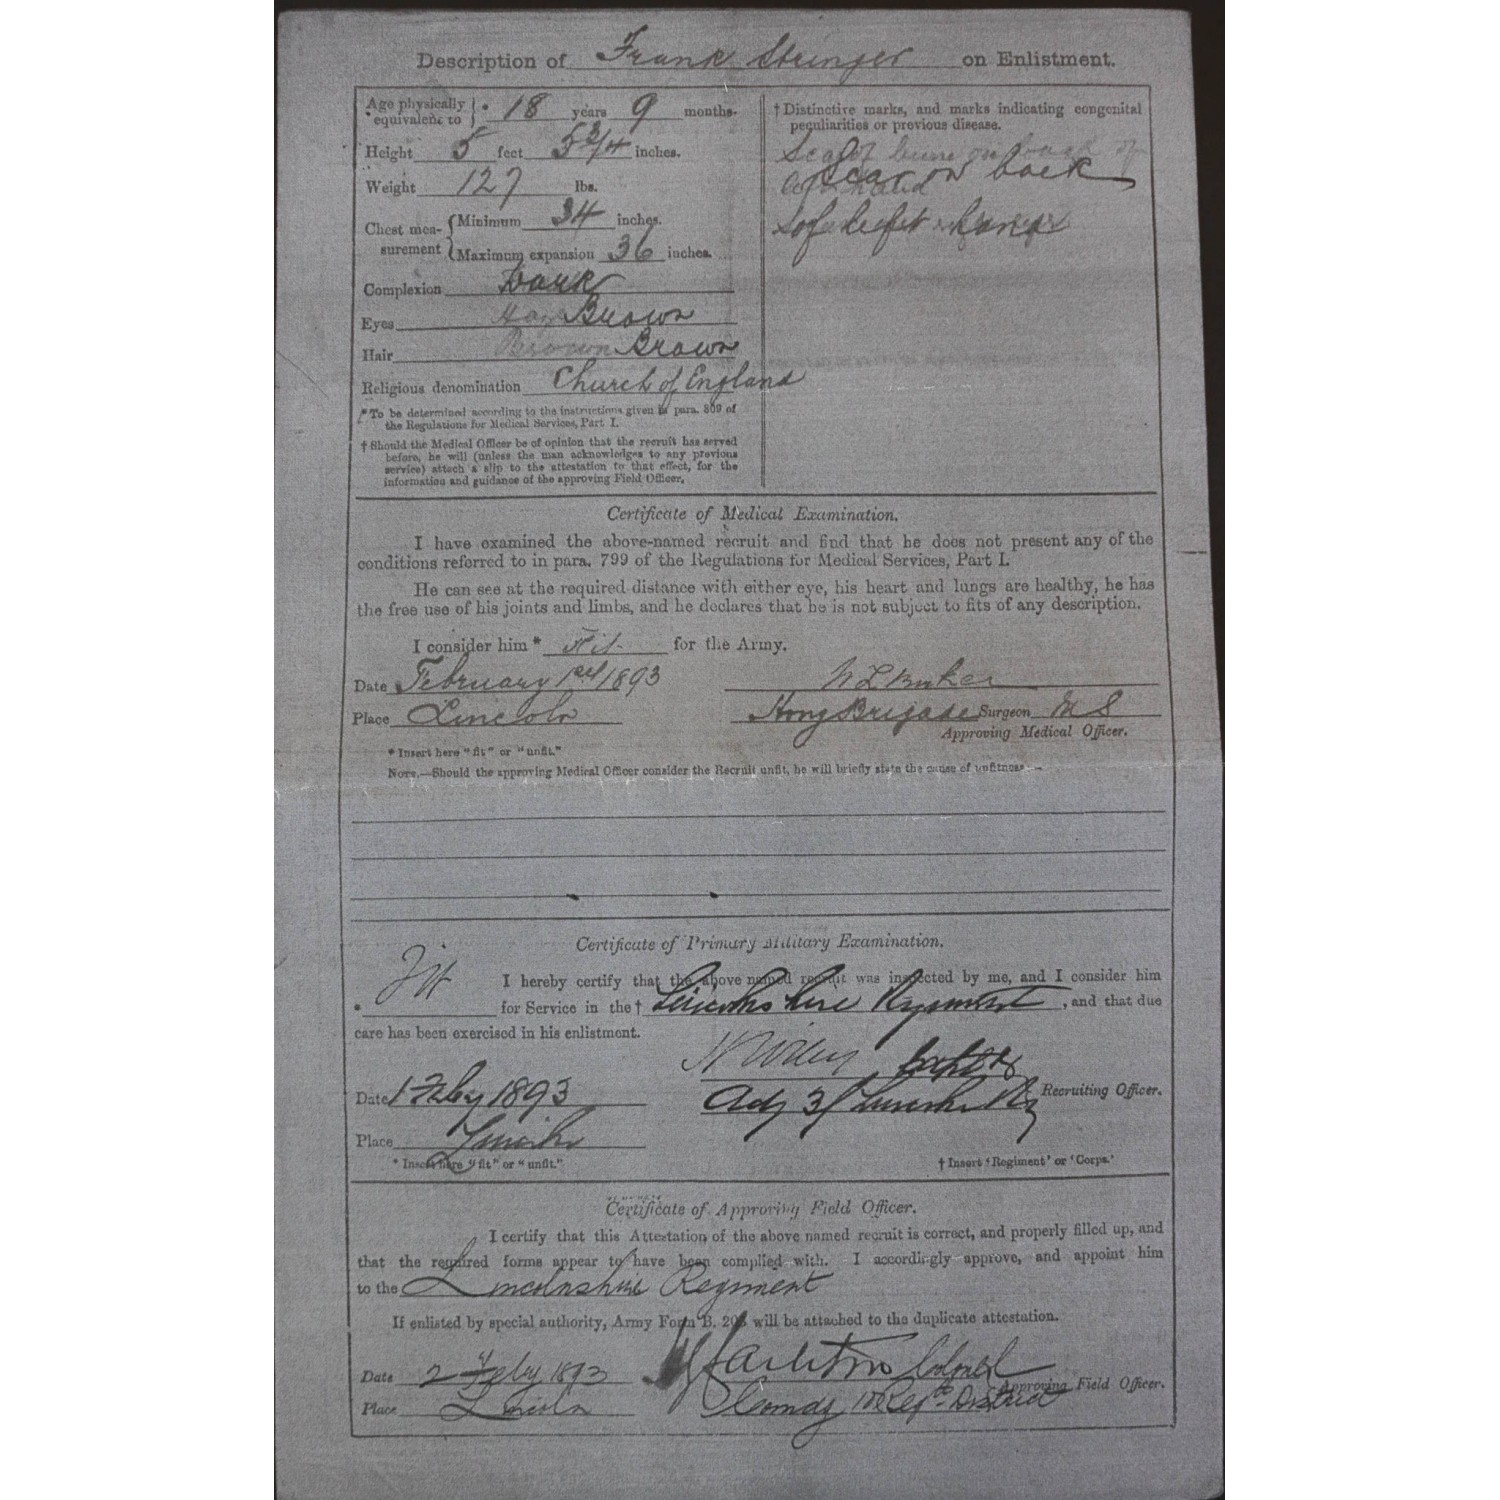 Description of Frank Stringer on Enlistment.
Age physically equivalent to } * 18 years 9 months.
Height 5 feet 5 3/4 inches.
Weight 127 lbs.
Chest mea-surement { Minimum 34 inches.
Maximum expansion 36 inches.
Complexion Dark
Eyes Brown
Hair Brown Brown
Religious denomination Church of England
* To be determined according to the instructions given in para. 809 of
the Regulations for Medical Services, Part I.
† Should the Medical Officer be of opinion that the recruit has served
before, he will (unless the man acknowledges to any previous
service) attach a slip to the attestation to that effect, for the
information and guidance of the approving Field Officer.
† Distinctive marks, and marks indicating congenital
peculiarities or previous disease.
Scar on back
of left hand
Certificate of Medical Examination.
I have examined the above-named recruit and find that he does not present any of the
conditions referred to in para. 799 of the Regulations for Medical Services, Part I.
He can see at the required distance with either eye, his heart and lungs are healthy, he has
the free use of his joints and limbs, and he declares that he is not subject to fits of any description.
I consider him * Fit for the Army.
Date February 1st 1893
Place Lincoln
Brigade Surgeon M S
Approving Medical Officer.
* Insert here "fit" or "unfit."
NOTE.—Should the approving Medical Officer consider the Recruit unfit, he will briefly state the cause of unfitness:—
Certificate of Primary Military Examination.
I hereby certify that the above named recruit was inspected by me, and I consider him
* Fit for Service in the † Lincolnshire Regiment, and that due
care has been exercised in his enlistment.
Date 1 Feby 1893
Adj 3/ Recruiting Officer.
Place Lincoln
* Insert here "fit" or "unfit."
† Insert 'Regiment' or 'Corps.'
Certificate of Approving Field Officer.
I certify that this Attestation of the above named recruit is correct, and properly filled up, and
that the required forms appear to have been complied with. I accordingly approve, and appoint him
to the Lincolnshire Regiment
If enlisted by special authority, Army Form B. 203 will be attached to the duplicate attestation.
Date 2 Feby 1893
Colonel
Approving Field Officer.
Place Lincoln
Comdg 10 Reg. District